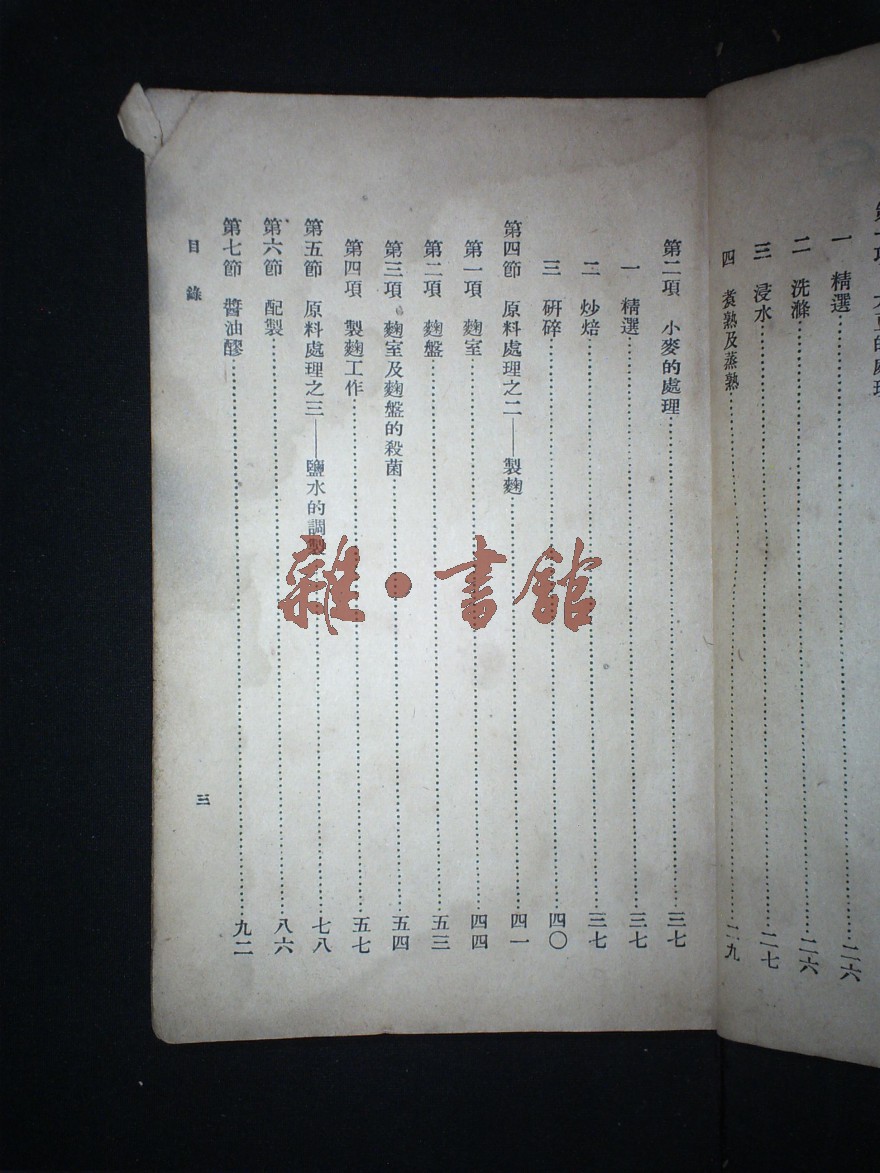 一 精選……二六
二 洗滌……二六
三 浸水……二七
四 煮熟及蒸熟……二九
第二項 小麥的處理……三七
一 精選……三七
二 炒焙……三七
三 研碎……四〇
第四節 原料處理之二——製麴……四一
第一項 麴室……四四
第二項 麴盤……五三
第三項 麴室及麴盤的殺菌……五四
第四項 製麴工作……五七
第五節 原料處理之三——鹽水的調製……七八
第六節 配製……八六
第七節 醬油醪……九二
目錄
三
雜·書館